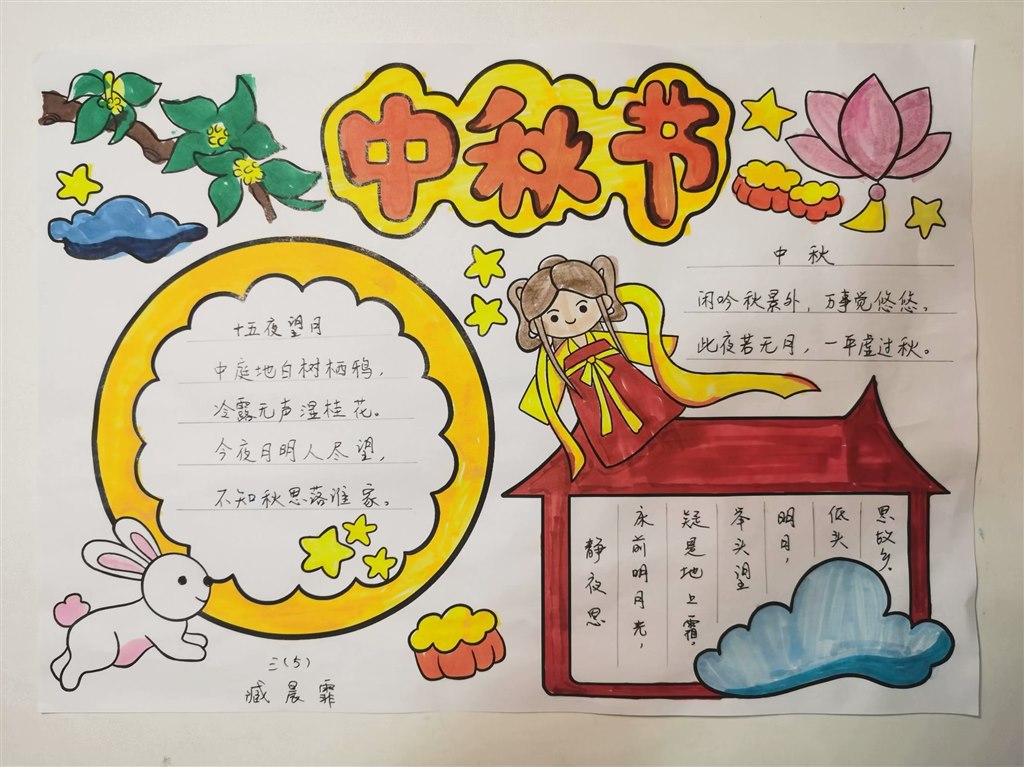 中秋节
十五夜望月
中庭地白树栖鸦，
冷露无声湿桂花。
今夜月明人尽望，
不知秋思落谁家。
三(5)
臧晨霏
中秋
闲吟秋景外，万事觉悠悠。
此夜若无月，一年虚过秋。
静夜思
床前明月光，
疑是地上霜。
举头望
明月，
低头
思故乡。